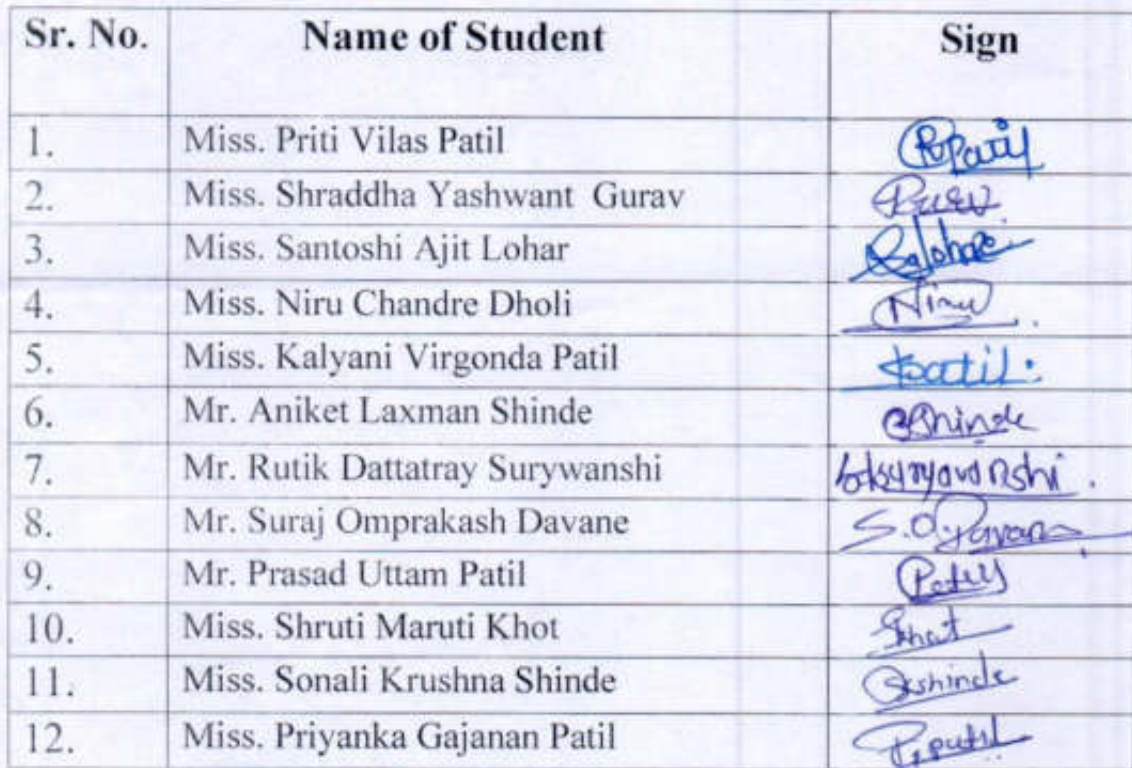 Sr. No. Name of Student Sign
1. Miss. Priti Vilas Patil
2. Miss. Shraddha Yashwant Gurav
3. Miss. Santoshi Ajit Lohar
4. Miss. Niru Chandre Dholi Niru
5. Miss. Kalyani Virgonda Patil
6. Mr. Aniket Laxman Shinde
7. Mr. Rutik Dattatray Surywanshi
8. Mr. Suraj Omprakash Davane
9. Mr. Prasad Uttam Patil
10. Miss. Shruti Maruti Khot
11. Miss. Sonali Krushna Shinde
12. Miss. Priyanka Gajanan Patil